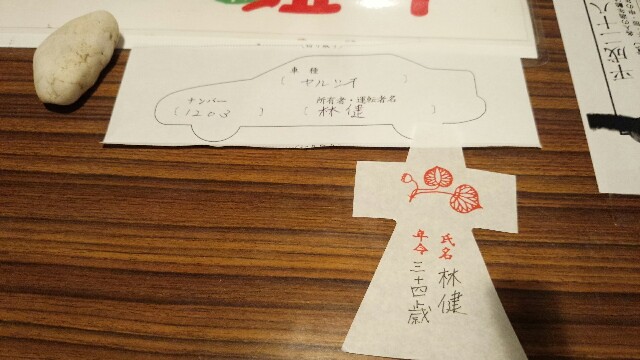 車種
(ヤルシチ)
ナンバー
(1208)
所有者・運転者名
(林健)
氏名
林健
年令
三十四歳
平成二十八